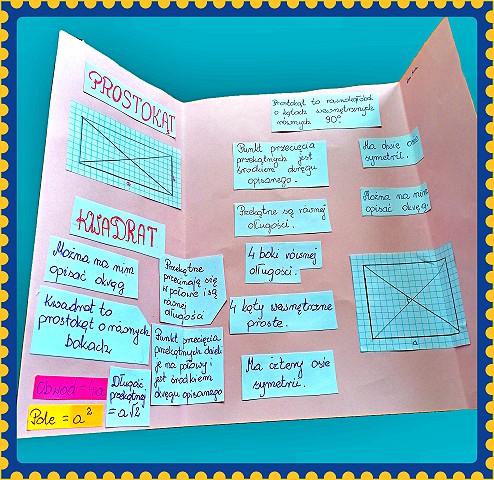 PROSTOKĄT
Prostokąt to równoległobok
o kątach wewnętrznych
równych 90°.
Punkt przecięcia
przekątnych jest
środkiem okręgu
opisanego.
Ma dwie osie
symetrii.
Przekątne są równej
długości.
Można na nim
opisać okrąg.
KWADRAT
Można na nim
opisać okrąg
Przekątne
przecinają się
w połowie i są
równej
długości
4 boki równej
długości.
Kwadrat to
prostokąt o równych
bokach
4 kąty wewnętrzne
proste.
Punkt przecięcia
przekątnych dzieli
je na połowy i
jest środkiem
okręgu opisanego
Ma cztery osie
symetrii.
Obwód = 4a
Pole = a²
Długość
przekątnej
= a√2
a